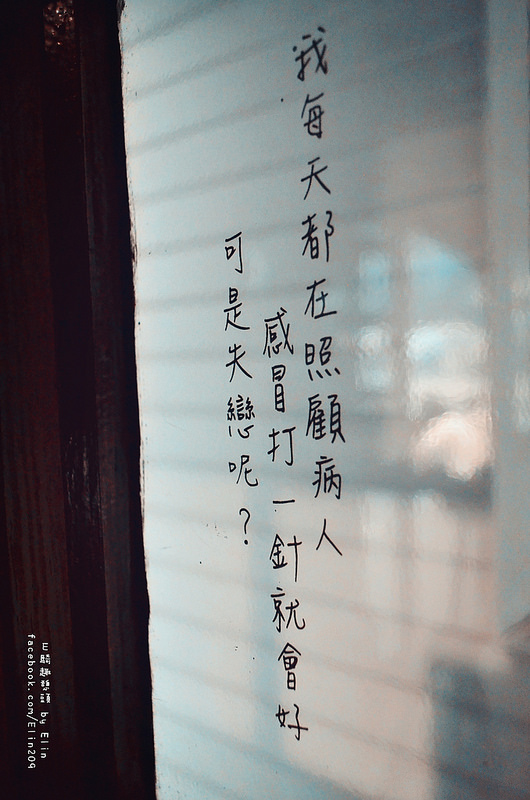 我每天都在照顧病人
感冒打一針就會好
可是失戀呢?
by Elin
facebook.com/Elin209